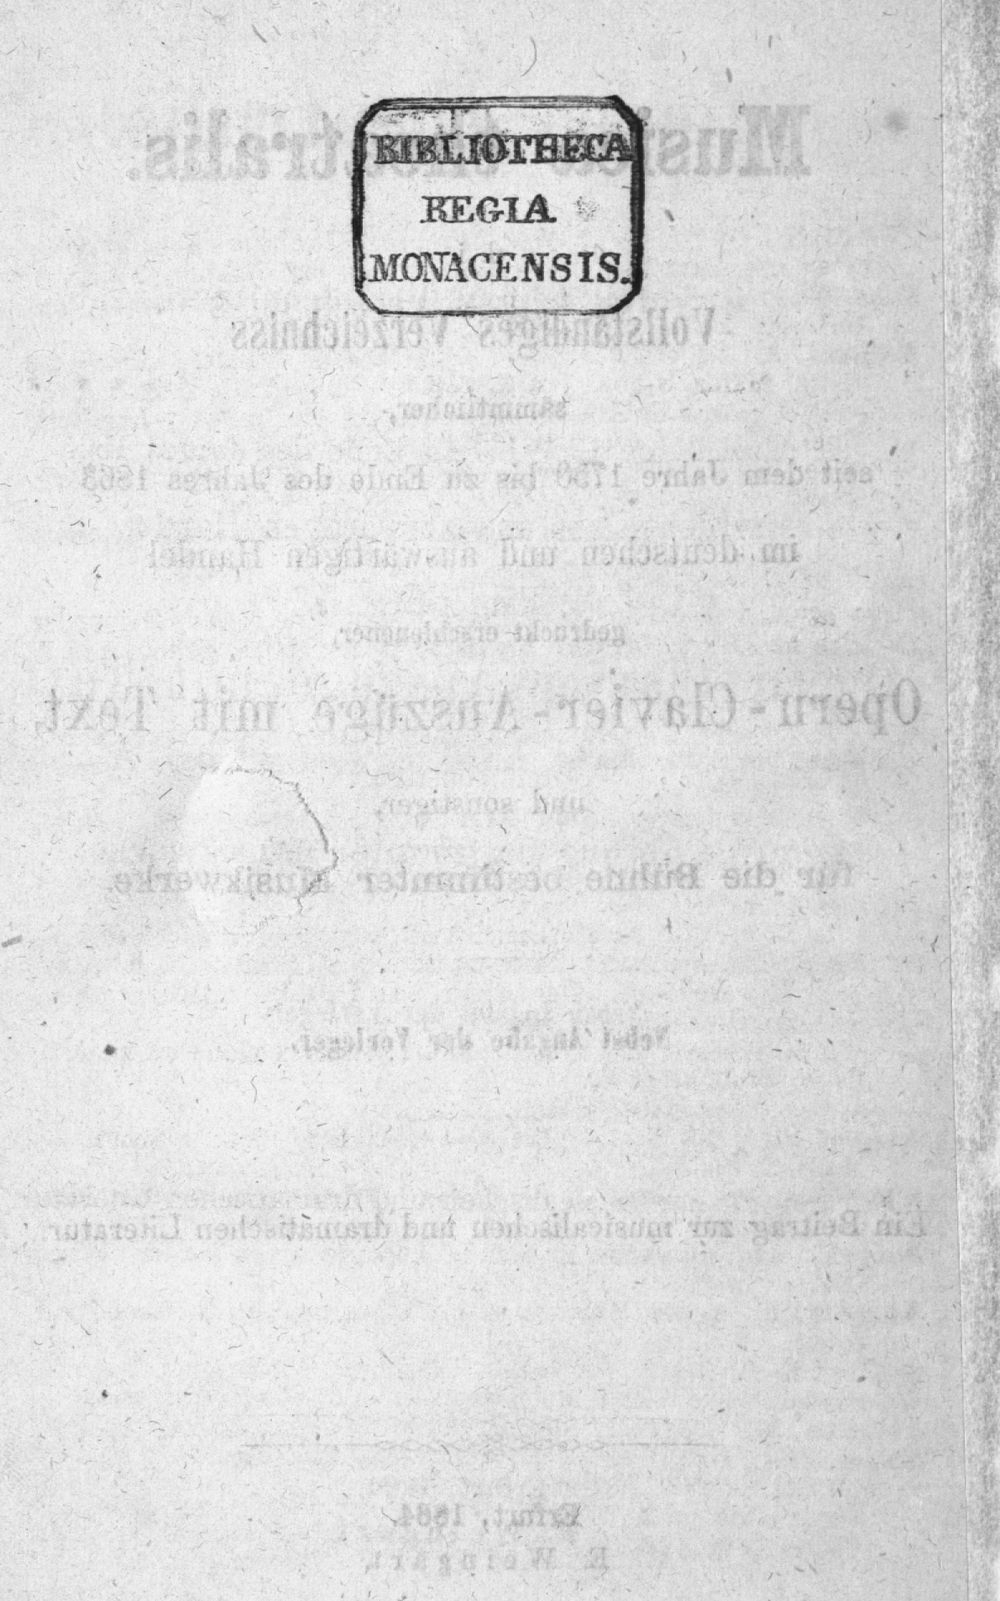 BIBLIOTHECA
REGIA
MONACENSIS.
Musica theatralis.
Vollständiges Verzeichniss
sämmtlicher,
seit dem Jahre 1750 bis zu Ende des Jahres 1863
im deutschen und auswärtigen Handel
gedruckt erschienener,
Opern-Clavier-Auszüge mit Text,
und sonstiger,
für die Bühne bestimmter Musikwerke.
Nebst Angabe der Verleger.
Ein Beitrag zur musicalischen und dramatischen Literatur
Erfurt, 1864.
E. Weingart.